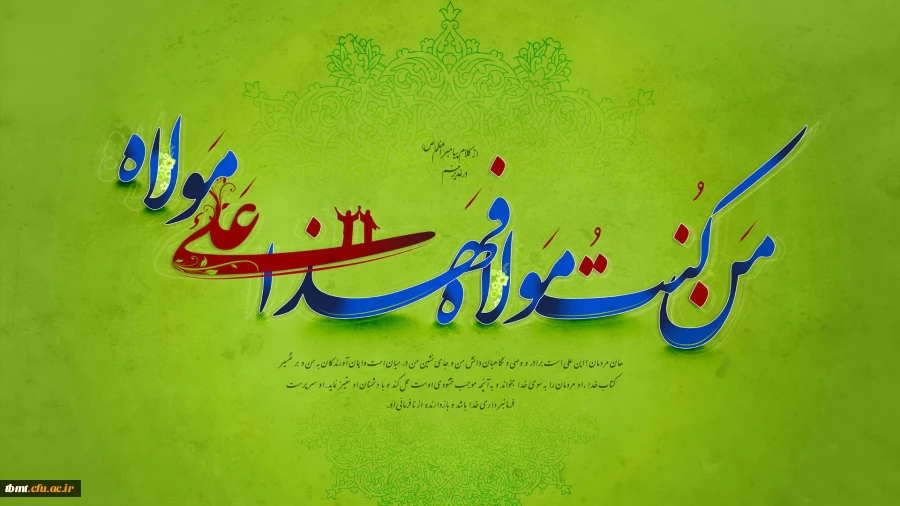 از کلام پیامبر اعظم(ص)
در غدیر خم
مَن کُنتُ مَولاه فَهذا عَلی مَولاه
هان مردمان! این علی است برادر و وصی و نگاهبان دانش من و جانشین من در میان امت و ایمان آورندگان به من و بر تفسیر
کتاب خدا. او مردمان را به سوی خدا بخواند و به آنچه موجب خشنودی اوست عمل کند و با دشمنان او ستیز نماید. او سرپرست
فرمانبرداری خدا باشد و بازدارنده از نافرمانی او.
tbmt.cfu.ac.ir